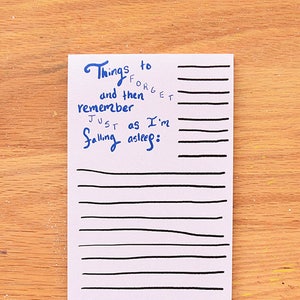 Things to
FORGET
and then
remember
JUST as I'm
falling asleep: